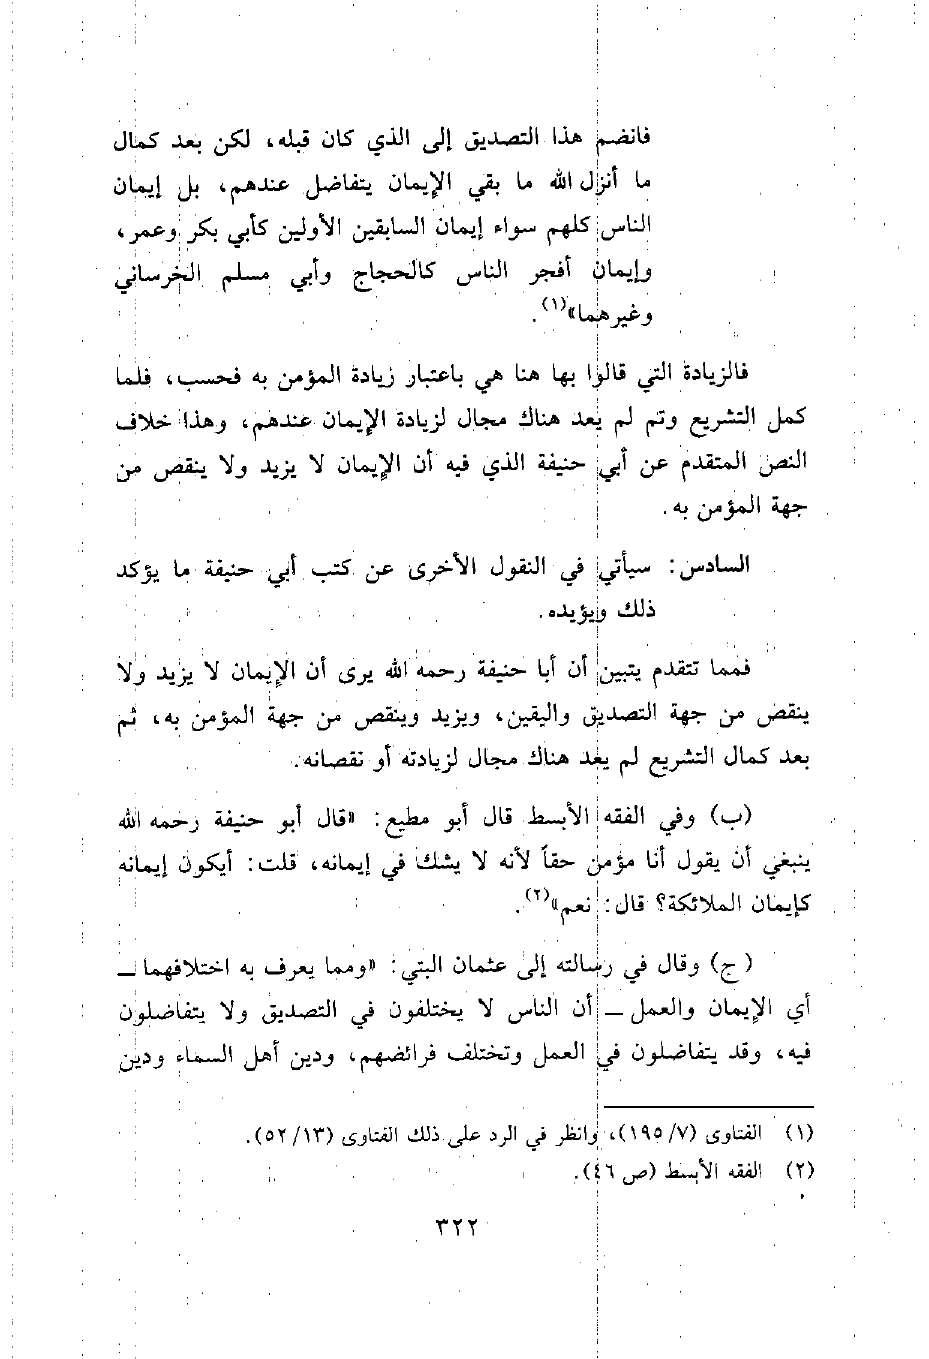 فانضم هذا التصديق إلى الذي كان قبله، لكن بعد كمال
ما أنزل الله ما بقي الإيمان يتفاضل عندهم، بل إيمان
الناس كلهم سواء إيمان السابقين الأولين كأبي بكر وعمر،
وإيمان أفجر الناس كالحجاج وأبي مسلم الخرساني
وغيرهما»(١).
فالزيادة التي قالوا بها هنا هي باعتبار زيادة المؤمن به فحسب، فلما
كمل التشريع وتم لم يعد هناك مجال لزيادة الإيمان عندهم، وهذا خلاف
النص المتقدم عن أبي حنيفة الذي فيه أن الإيمان لا يزيد ولا ينقص من
جهة المؤمن به.
السادس: سيأتي في النقول الأخرى عن كتب أبي حنيفة ما يؤكد
ذلك ويؤيده.
فمما تتقدم يتبين أن أبا حنيفة رحمه الله يرى أن الإيمان لا يزيد ولا
ينقص من جهة التصديق واليقين، ويزيد وينقص من جهة المؤمن به، ثم
بعد كمال التشريع لم يعد هناك مجال لزيادته أو نقصانه.
(ب) وفي الفقه الأبسط قال أبو مطيع: «قال أبو حنيفة رحمه الله
ينبغي أن يقول أنا مؤمن حقاً لأنه لا يشك في إيمانه، قلت: أيكون إيمانه
كإيمان الملائكة؟ قال: نعم»(٢).
(ج) وقال في رسالته إلى عثمان البتي: «ومما يعرف به اختلافهما ــ
أي الإيمان والعمل ــ أن الناس لا يختلفون في التصديق ولا يتفاضلون
فيه، وقد يتفاضلون في العمل وتختلف فرائضهم، ودين أهل السماء ودين
(١) الفتاوى (٧/ ١٩٥)، وانظر في الرد على ذلك الفتاوى (١٣/ ٥٢).
(٢) الفقه الأبسط (ص ٤٦).
٣٢٢